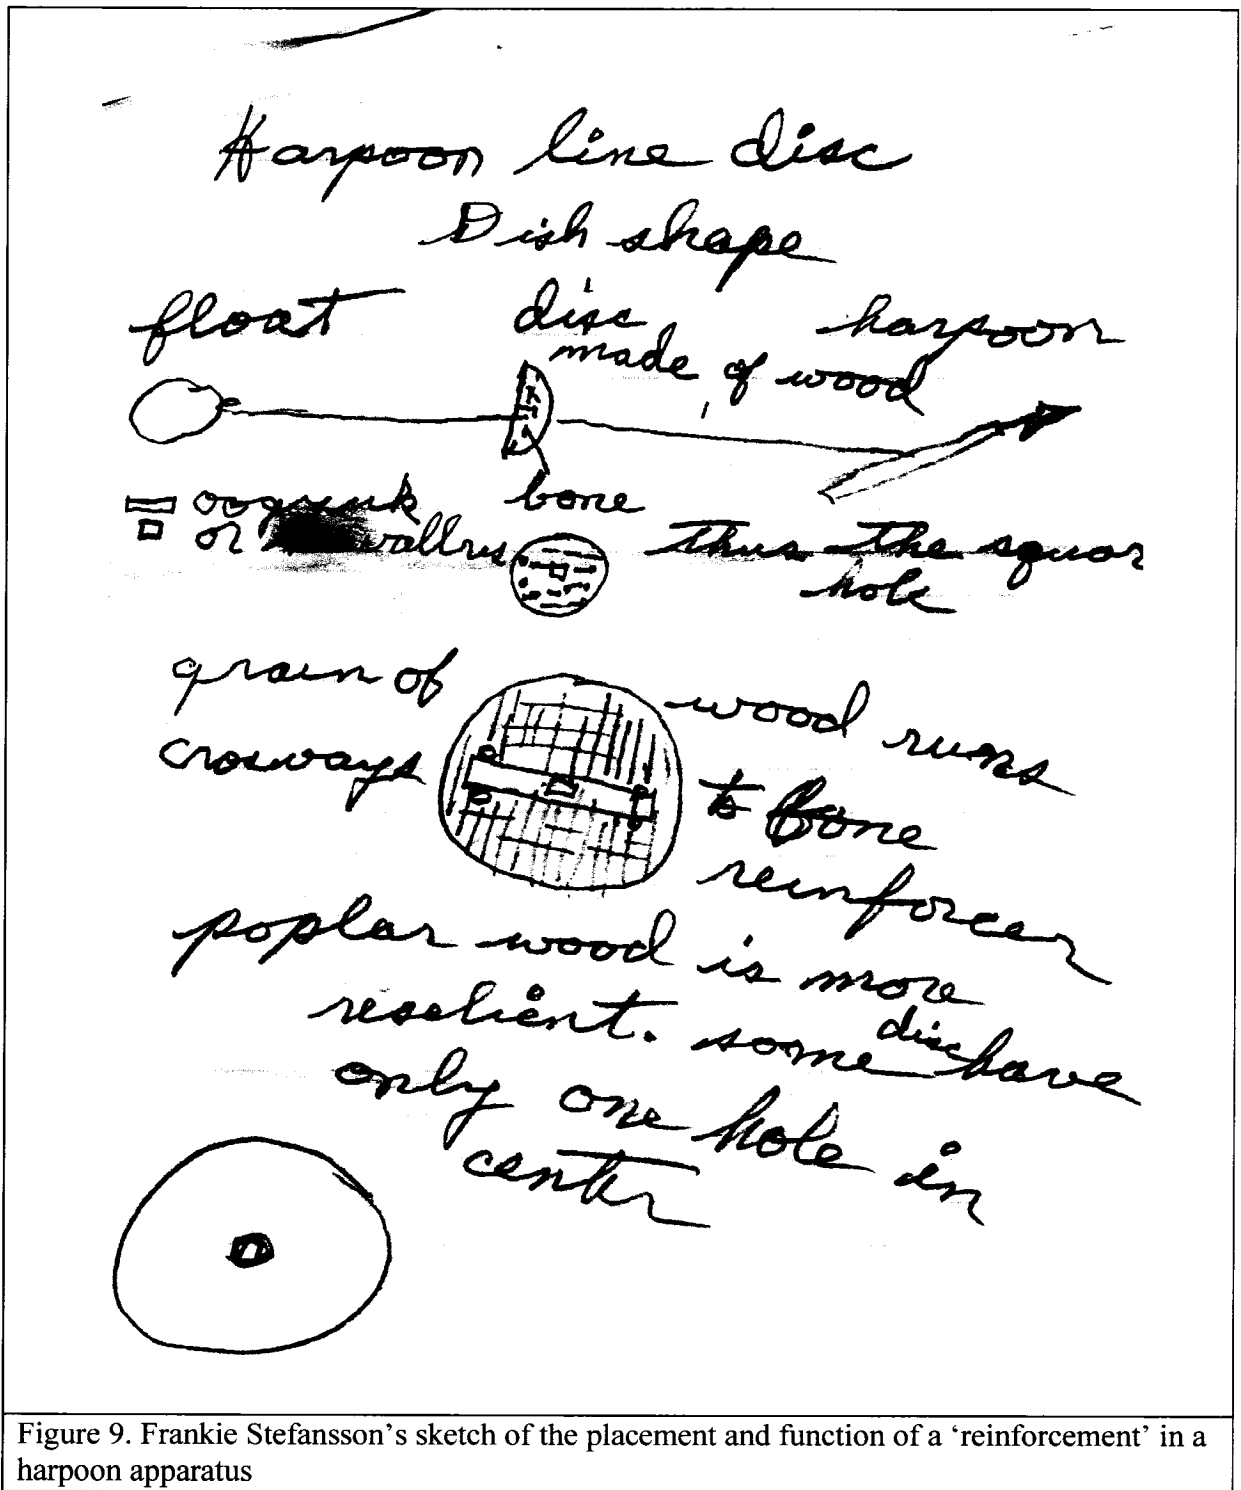 Harpoon line disc
Dish shape
float disc harpoon
made of wood
oogruk bone
or wallrus thus the squar
hole
grain of wood runs
crosways to bone
reinforcer
poplar wood is more
reselient. some disc have
only one hole in
centr
Figure 9. Frankie Stefansson's sketch of the placement and function of a 'reinforcement' in a
harpoon apparatus